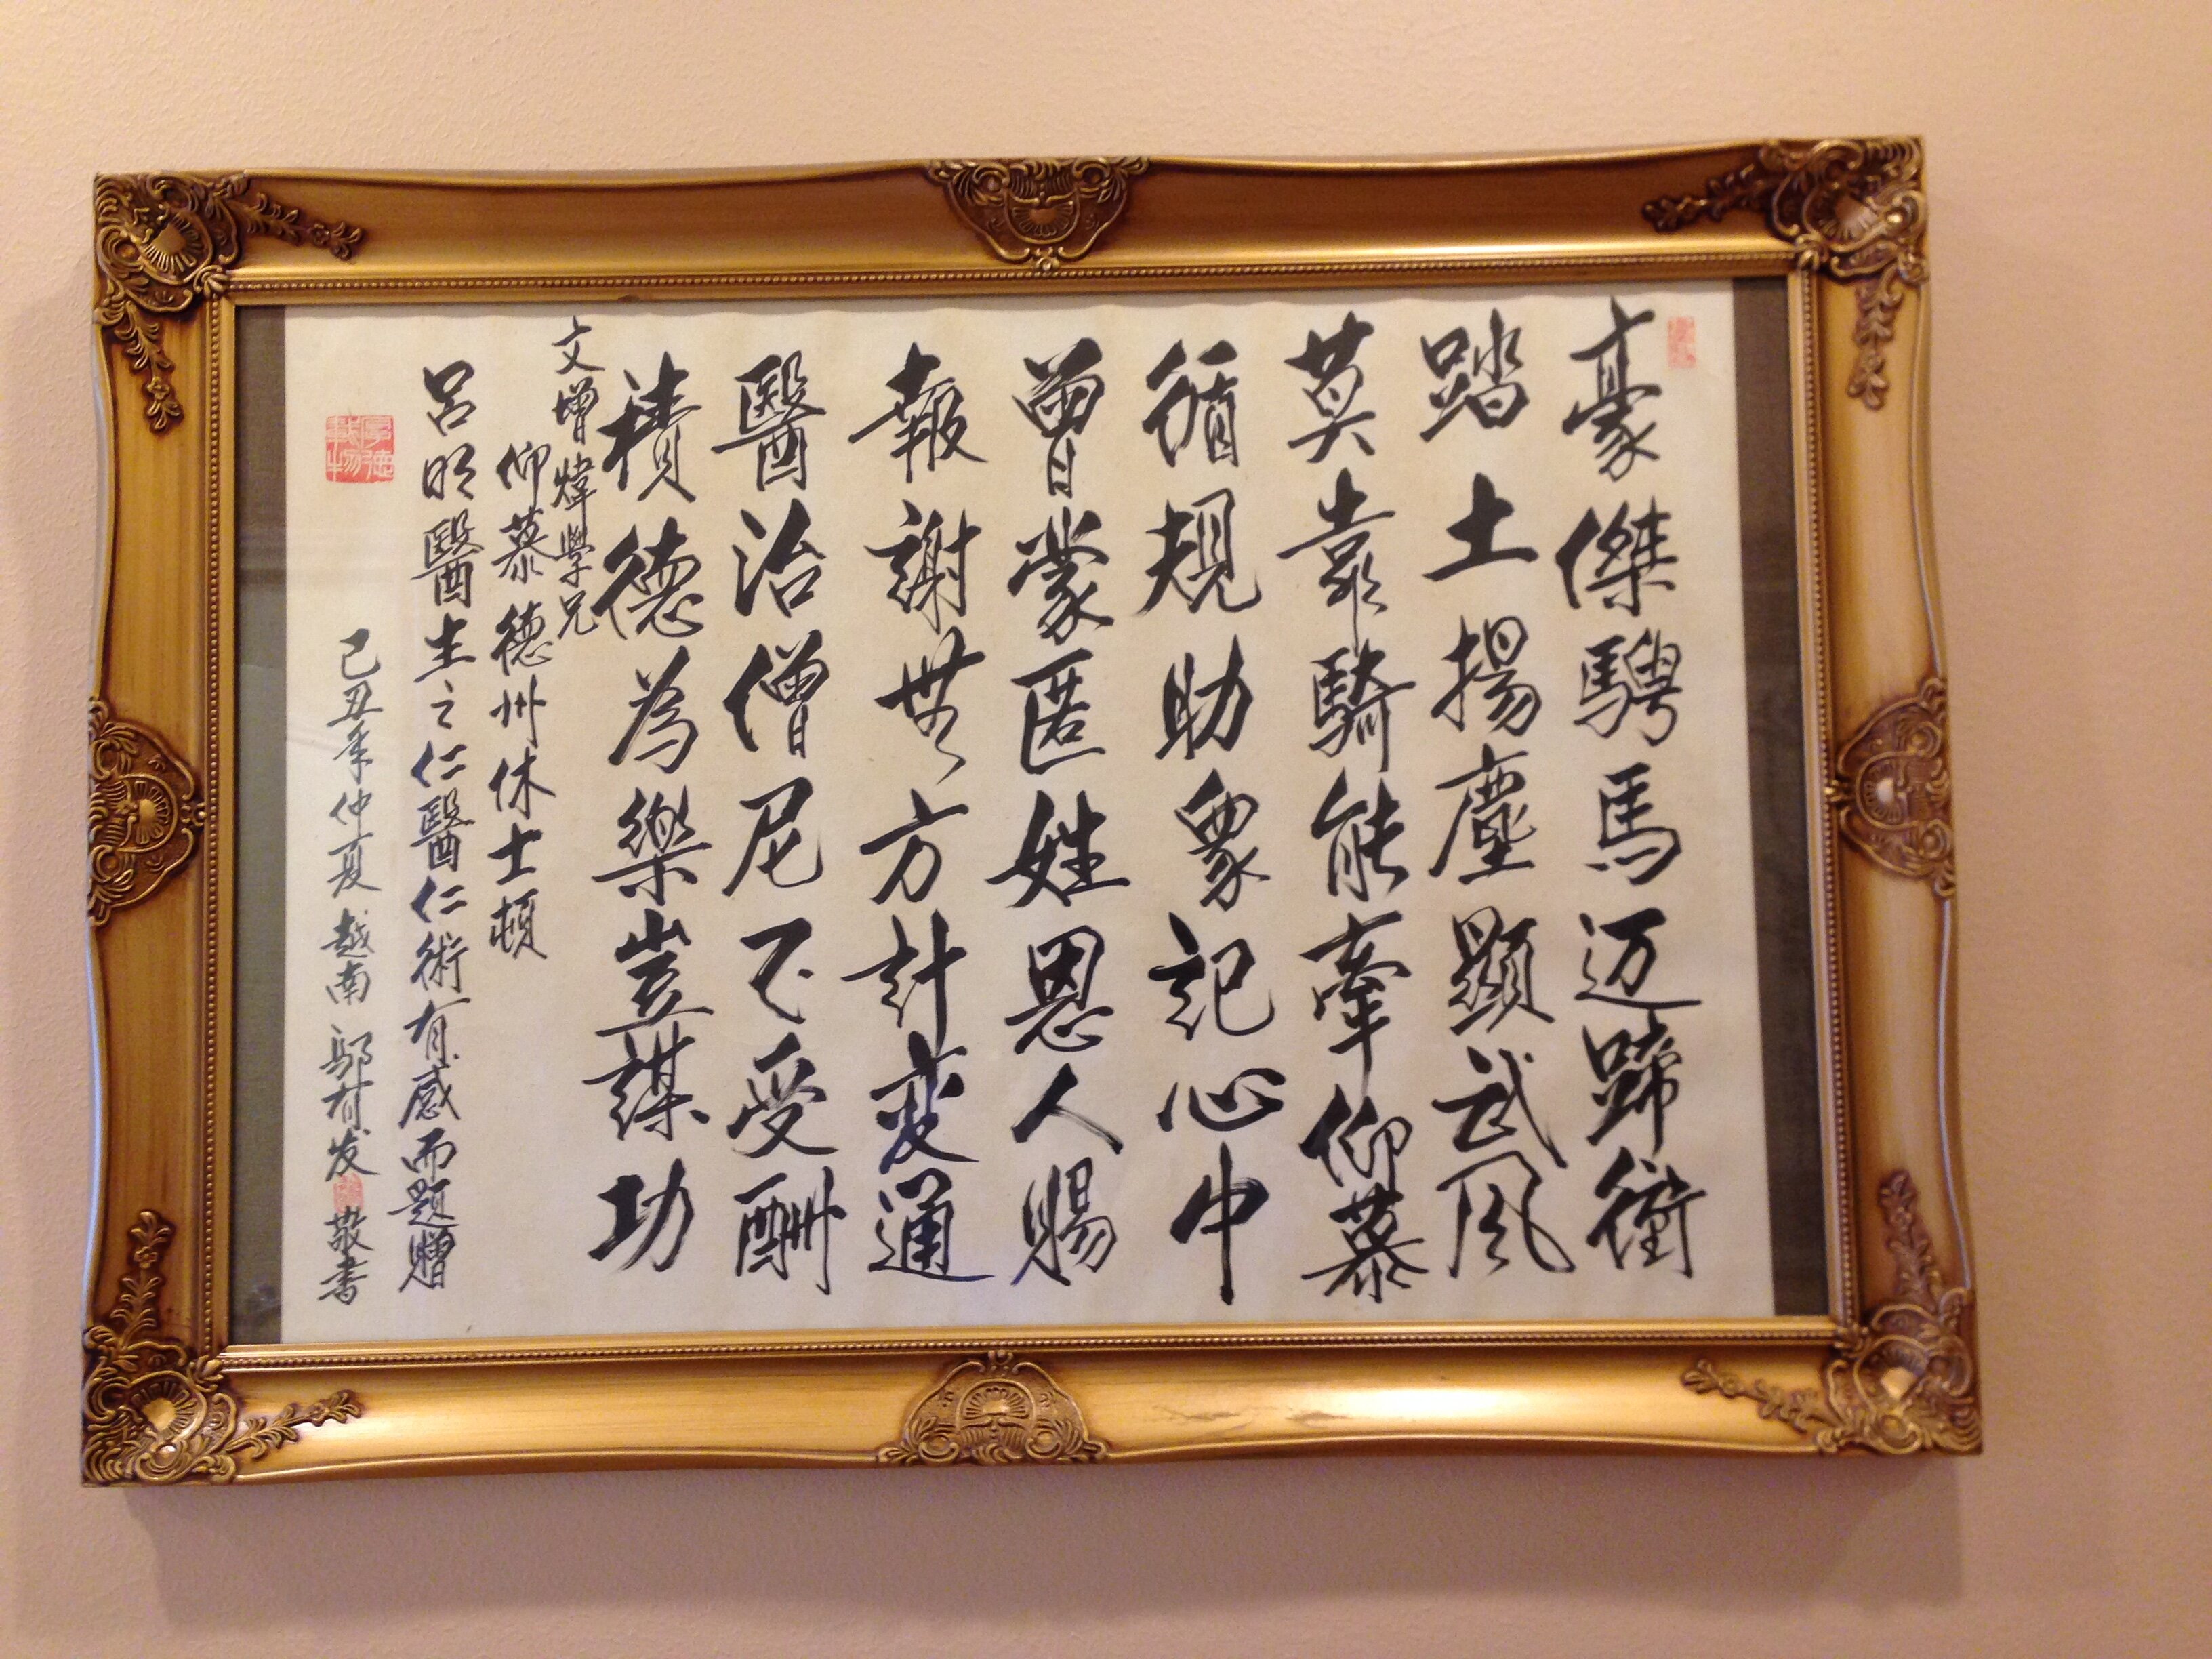 豪傑騁馬迈蹄衝
踏土揚塵顯武風
莫靠騎能牽仰慕
循規助衆記心中
曾蒙匿姓恩人賜
報謝無方計变通
醫治僧尼不受酬
積德為樂豈謀功
文增煒學兄
仰慕德州休士頓
呂明醫生之仁醫仁術有感而题贈
己丑年仲夏越南鄔有发敬書
厚德載物